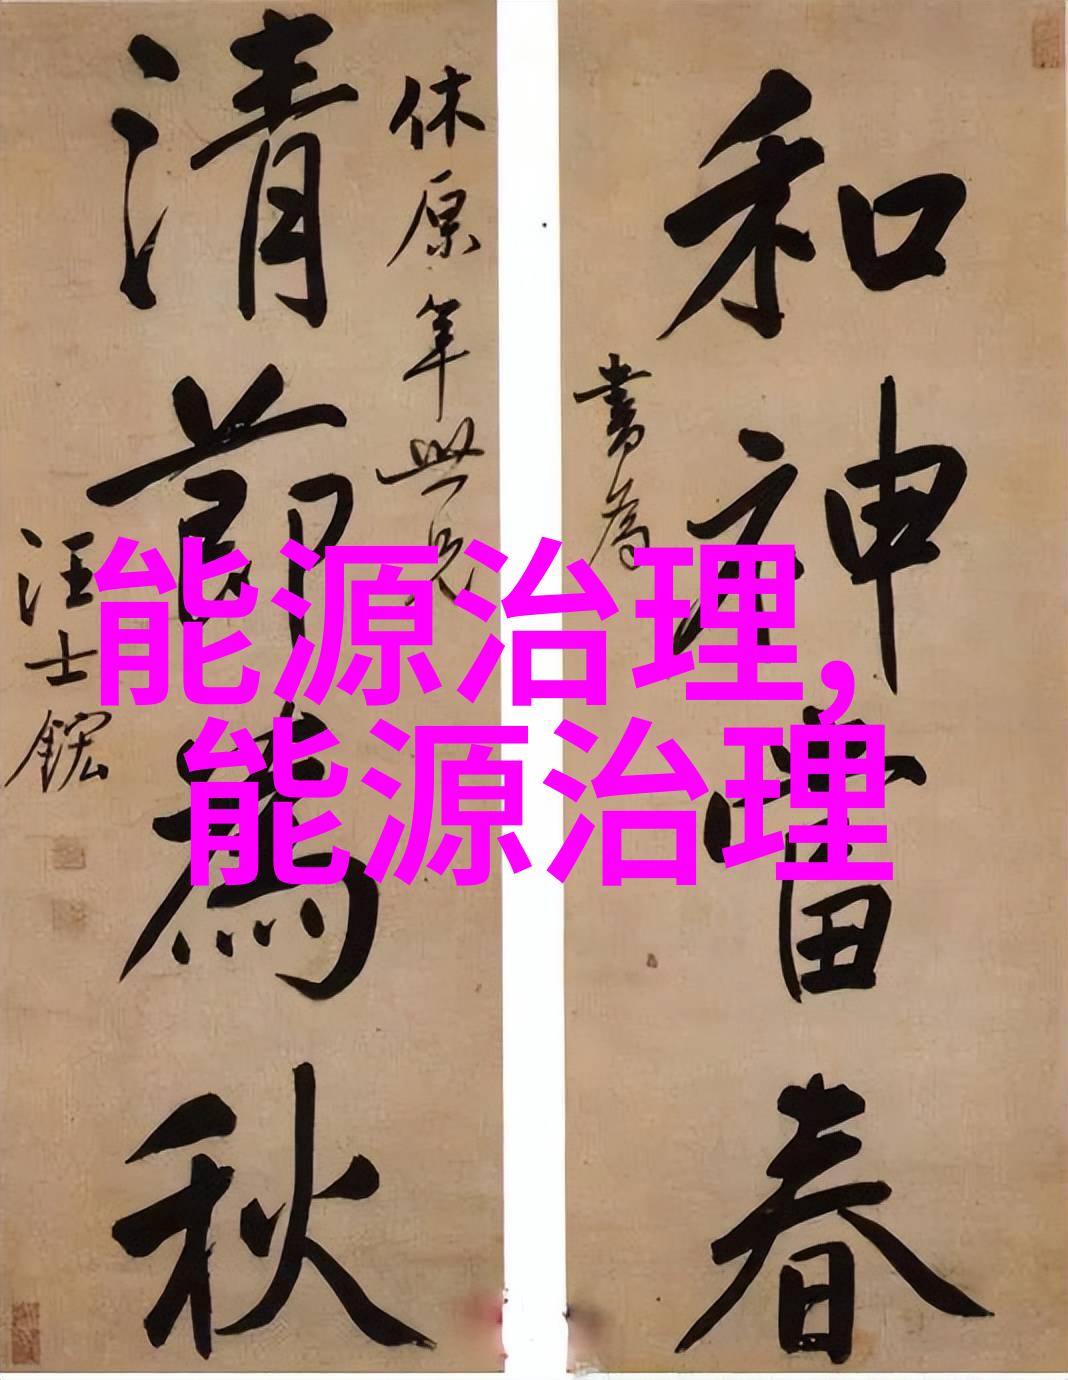 和神當春
書為
休原年世兄
清節為秋
汪士鋐
能源治理,
能源治理